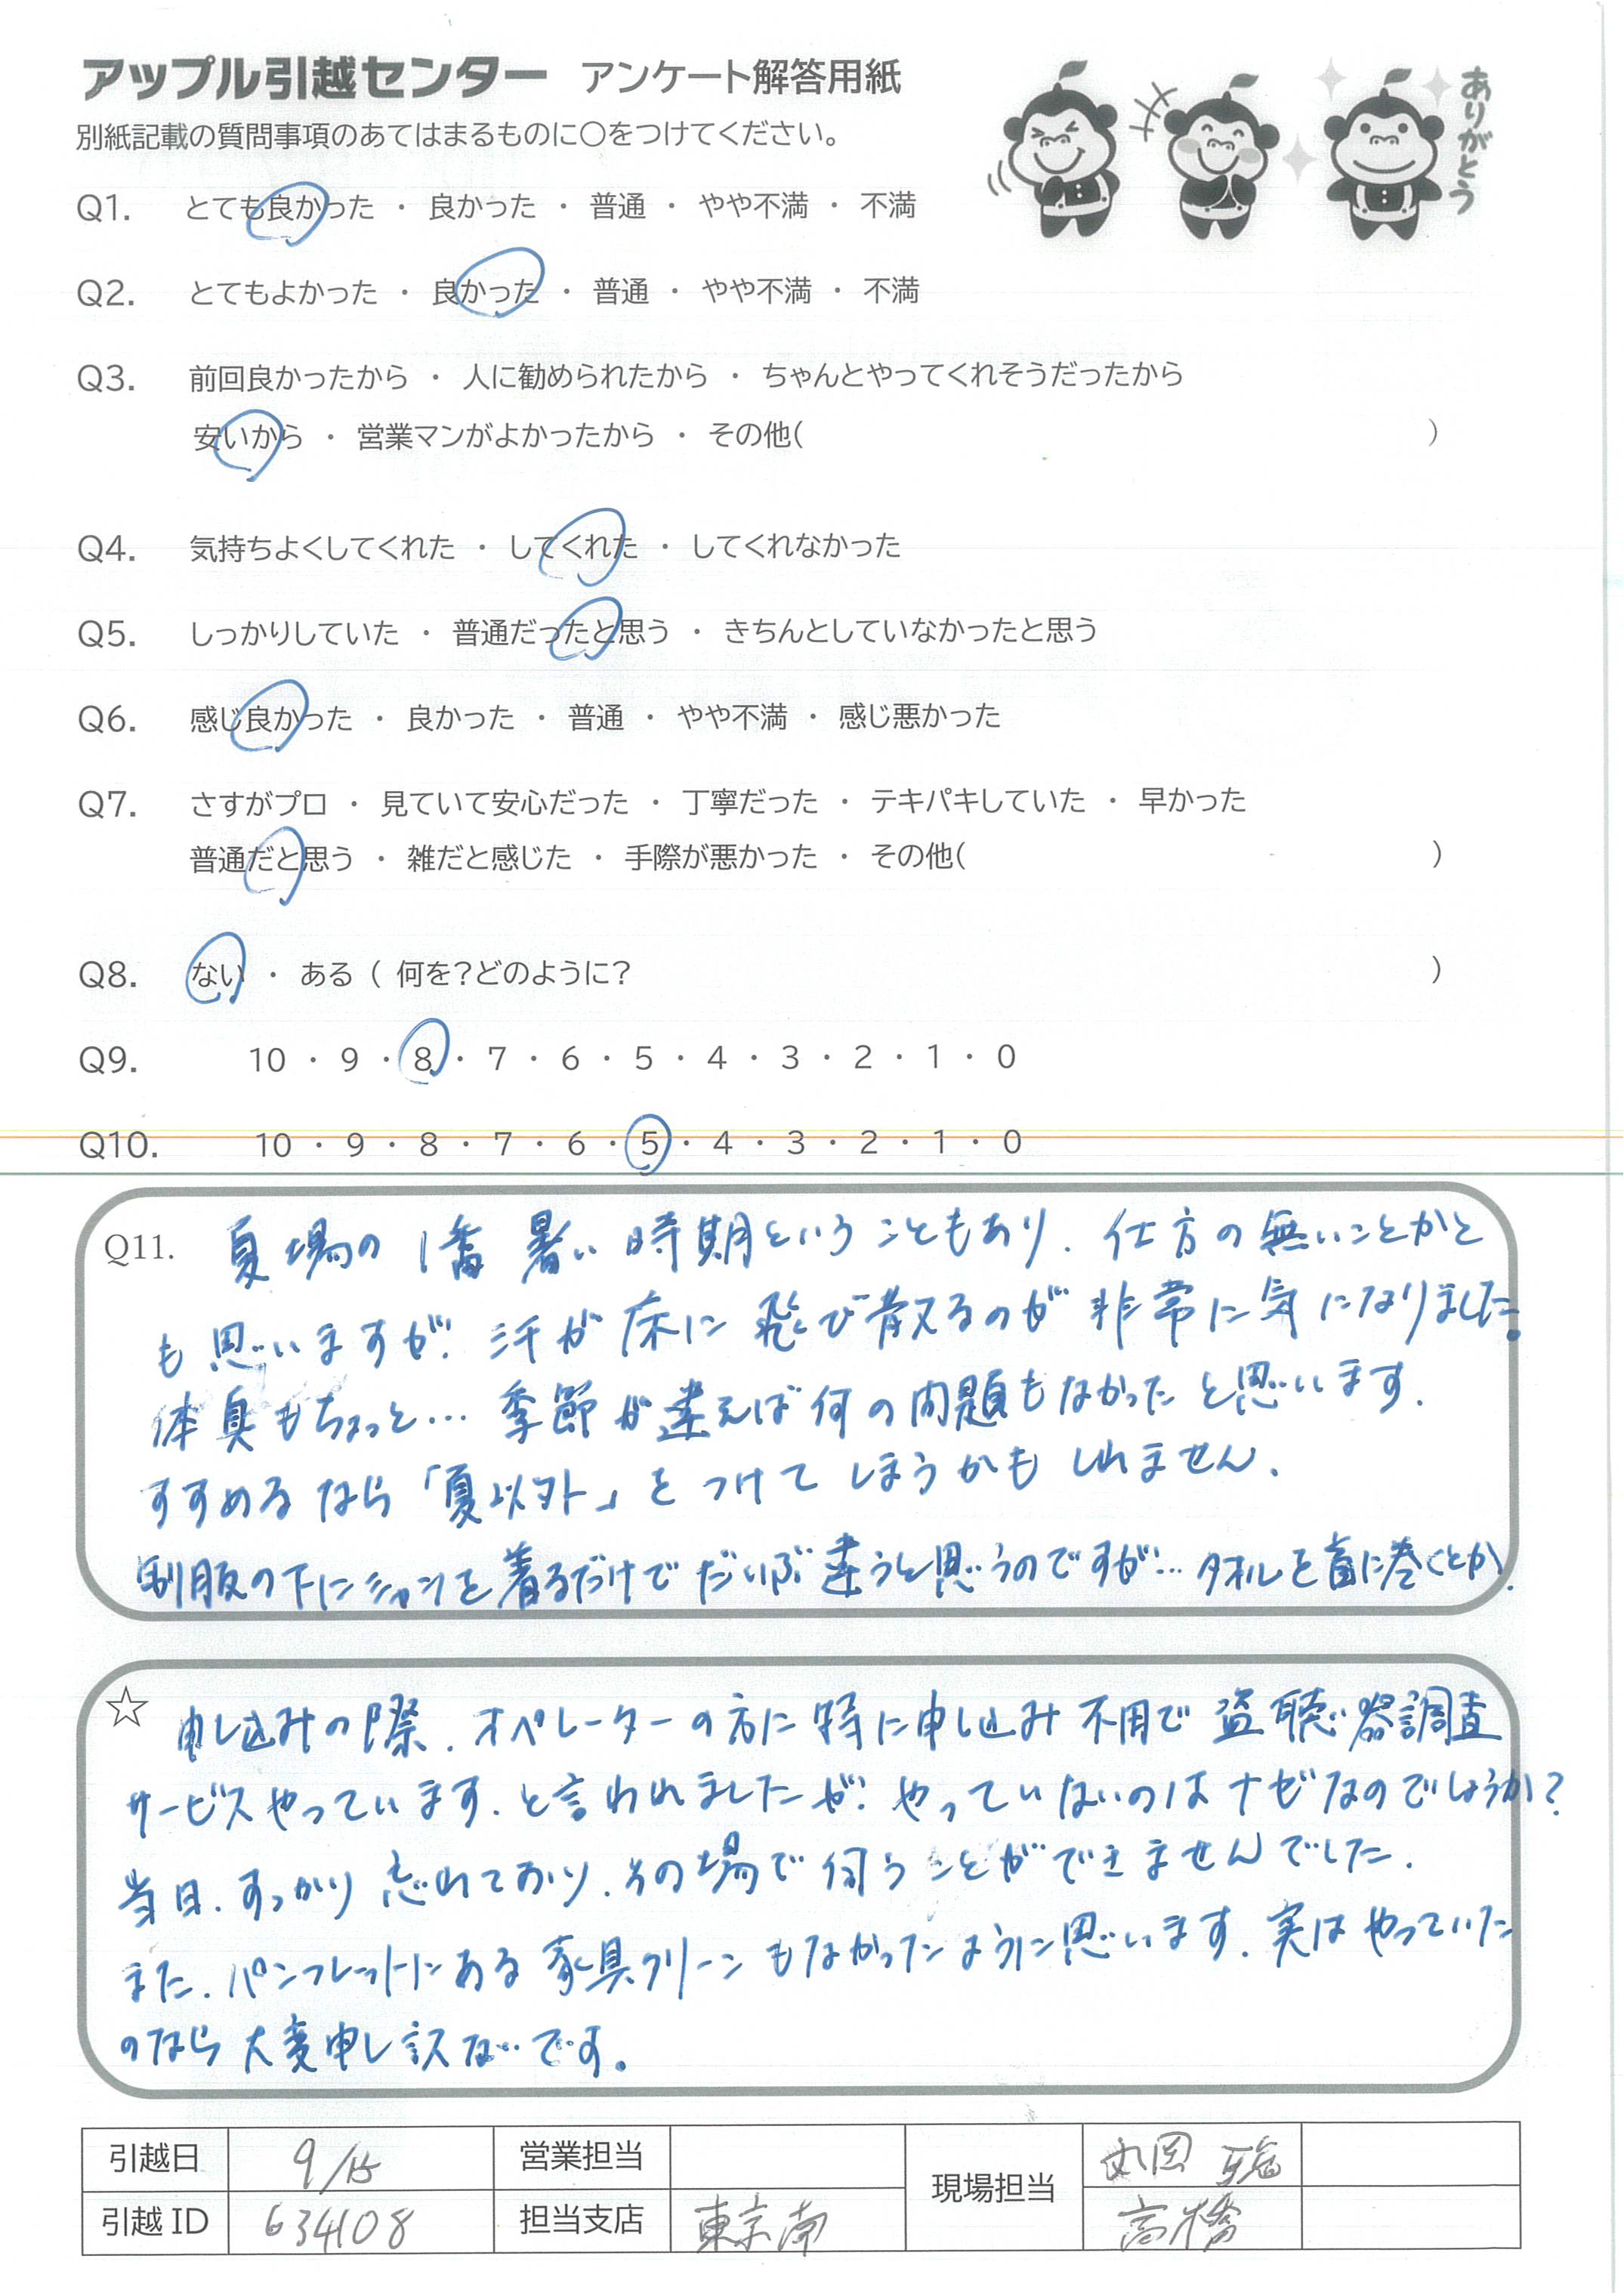 アップル引越センター アンケート解答用紙
ありがとう
別紙記載の質問事項のあてはまるものに〇をつけてください。
Q1. とても良かった ・ 良かった ・ 普通 ・ やや不満 ・ 不満
Q2. とてもよかった ・ 良かった ・ 普通 ・ やや不満 ・ 不満
Q3. 前回良かったから ・ 人に勧められたから ・ ちゃんとやってくれそうだったから
安いから ・ 営業マンがよかったから ・ その他( )
Q4. 気持ちよくしてくれた ・ してくれた ・ してくれなかった
Q5. しっかりしていた ・ 普通だったと思う ・ きちんとしていなかったと思う
Q6. 感じ良かった ・ 良かった ・ 普通 ・ やや不満 ・ 感じ悪かった
Q7. さすがプロ ・ 見ていて安心だった ・ 丁寧だった ・ テキパキしていた ・ 早かった
普通だと思う ・ 雑だと感じた ・ 手際が悪かった ・ その他( )
Q8. ない ・ ある ( 何を?どのように? )
Q9. 10 ・ 9 ・ 8 ・ 7 ・ 6 ・ 5 ・ 4 ・ 3 ・ 2 ・ 1 ・ 0
Q10. 10 ・ 9 ・ 8 ・ 7 ・ 6 ・ 5 ・ 4 ・ 3 ・ 2 ・ 1 ・ 0
Q11. 夏場の1番暑い時期ということもあり、仕方の無いことかと
も思いますが、汗が床に飛び散えるのが非常に気になりました。
体臭もちょっと… 季節が違えば何の問題もなかったと思います。
すすめるなら「夏以外」をつけてしまうかもしれません。
制服の下にシャツを着るだけでだいぶ違うと思うのですが… タオルを首に巻くとか。
☆ 申し込みの際、オペレーターの方に特に申し込み不用で盗聴器調査
サービスやっています、と言われましたが、やっていないのはナゼなのでしょうか?
当日、すっかり忘れており、その場で伺うことができませんでした。
また、パンフレットにある家具クリーンもなかったように思います。実はやっていた
のなら大変申し訳ないです。
引越日 9/15 営業担当 現場担当 丸岡
引越 ID 634108 担当支店 東京南 高橋